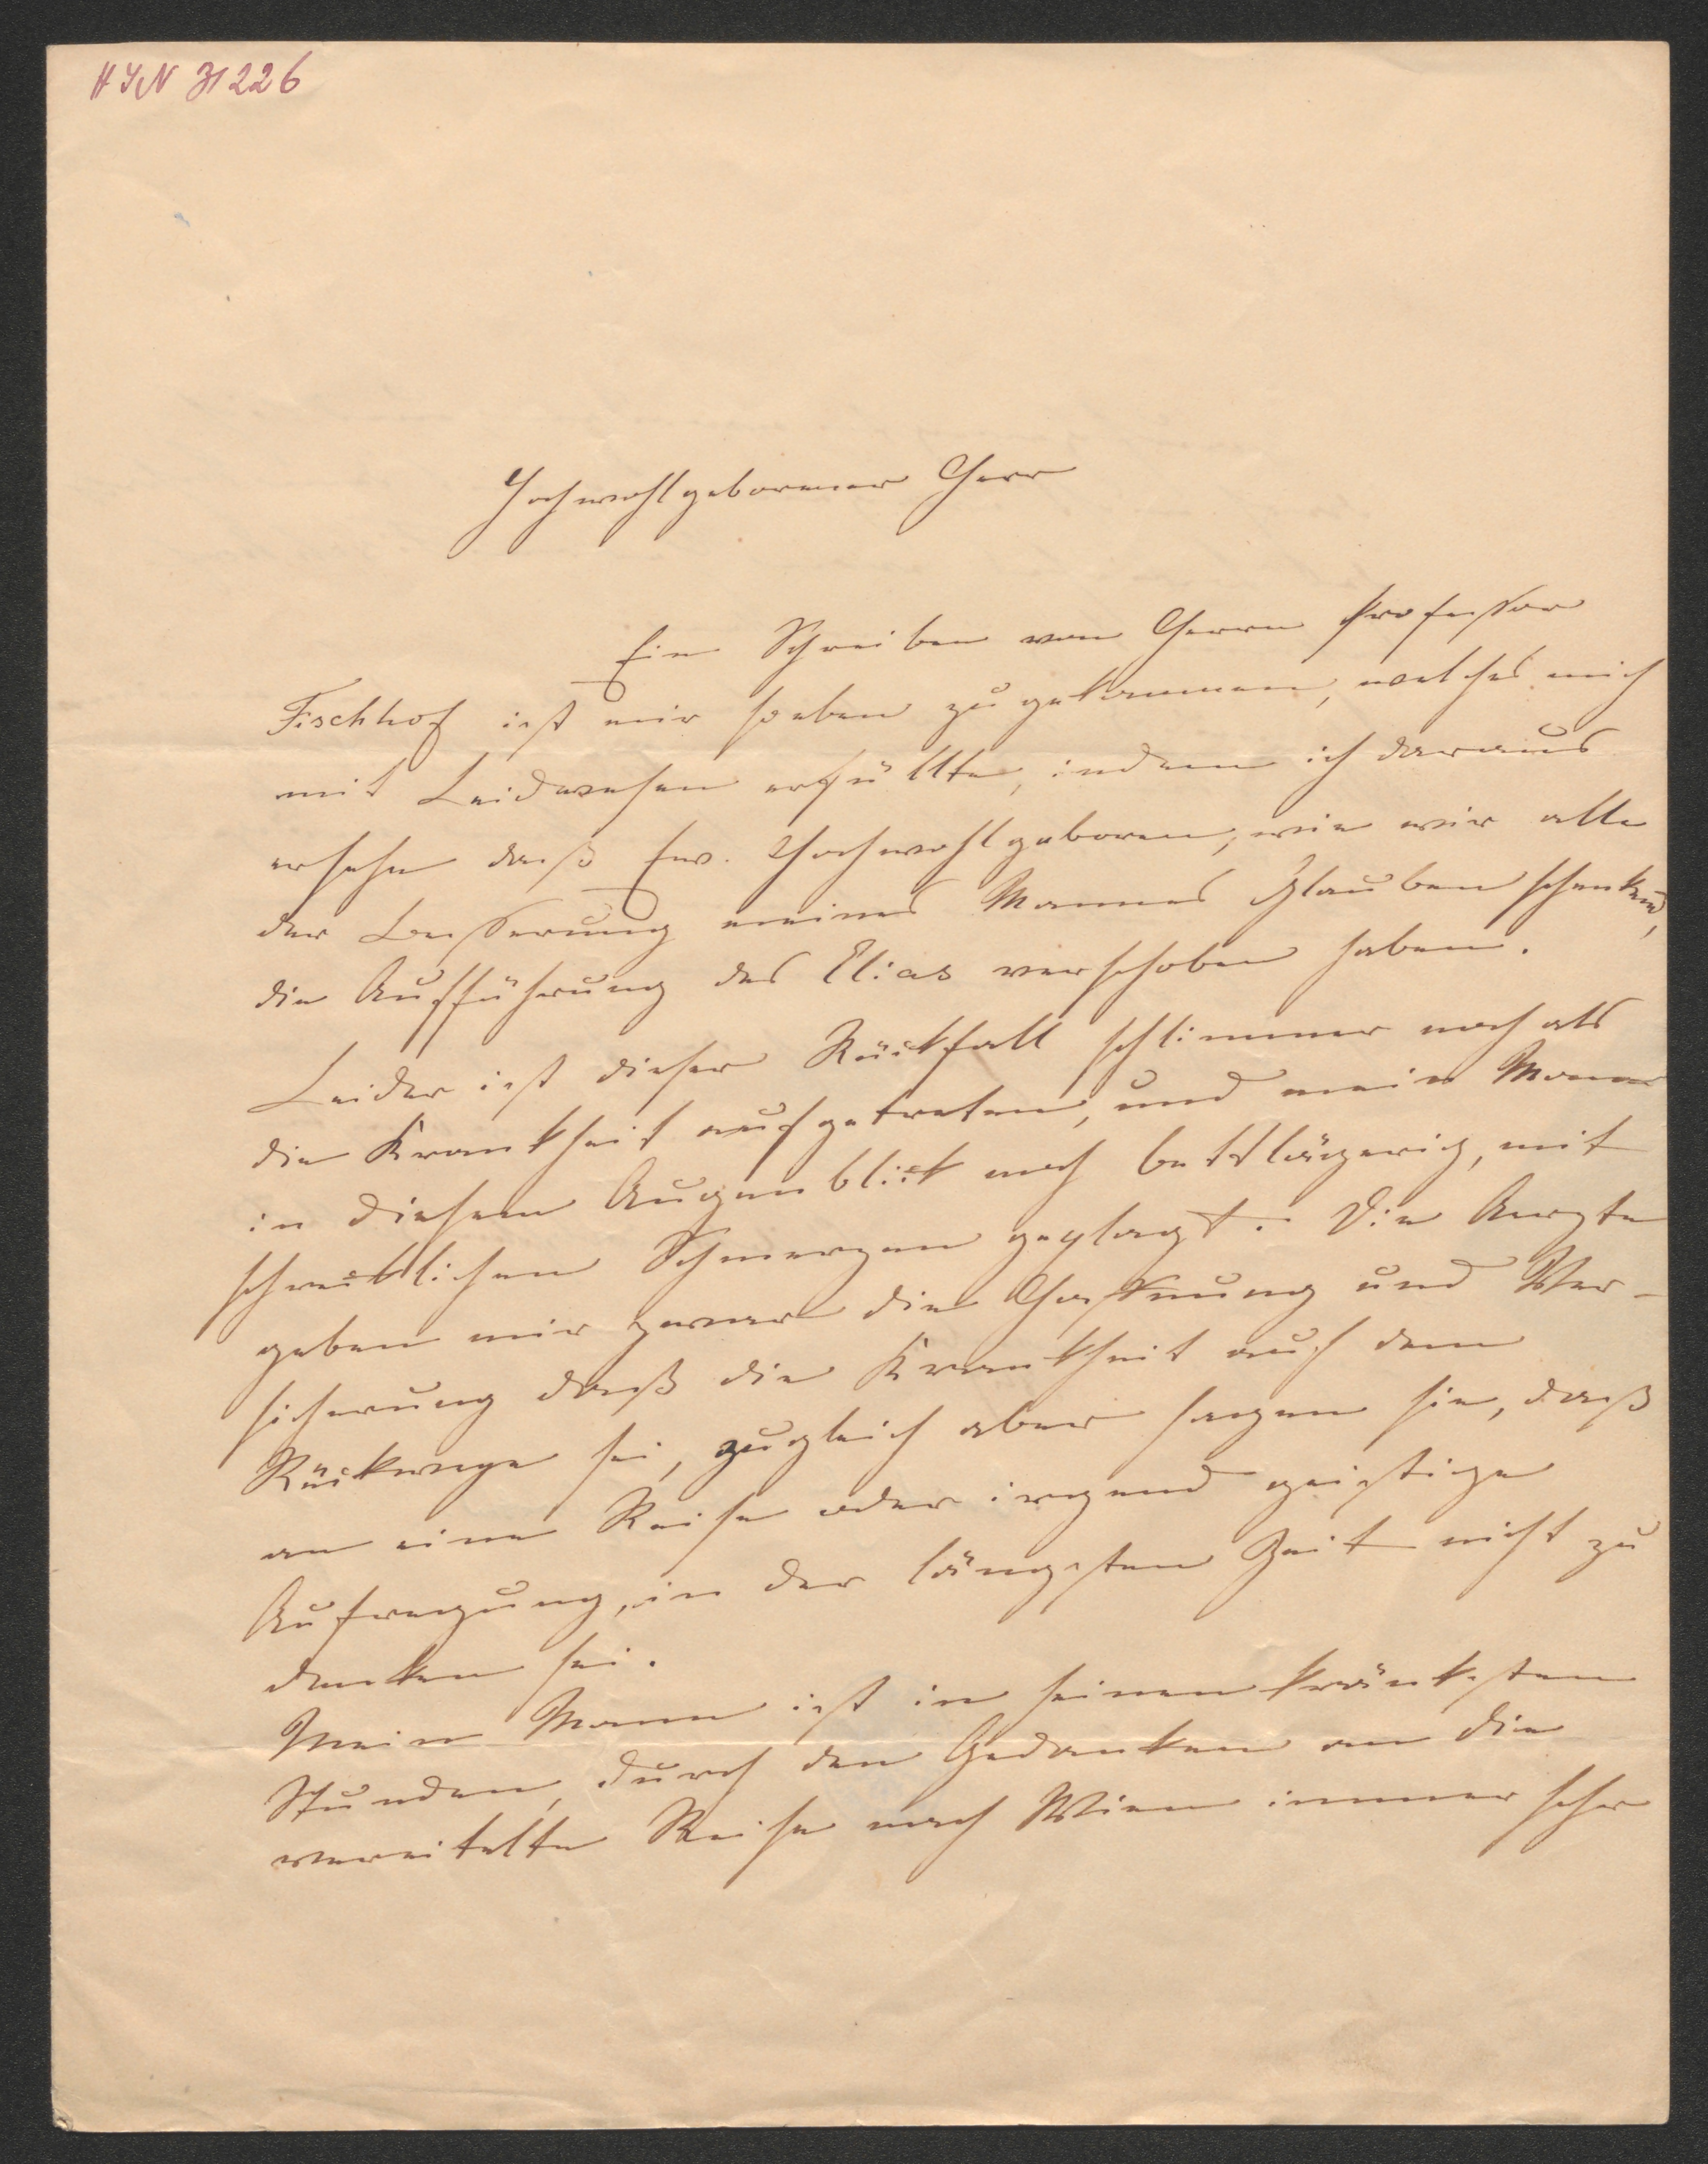 HIN 31226
Hochwohlgeborener Herr
Ein Schreiben von Herrn Professor
Fischhof ist mir soeben zugekommen, welches mich
mit Leidwesen erfüllte, indem ich daraus
ersehe daß Ew. Hochwohlgeboren, wie wir alle
der Besserung meines Mannes Glauben schenkend,
die Aufführung des Elias verschoben haben.
Leider ist dieser Rückfall schlimmer noch als
die Krankheit aufgetreten, und mein Mann
in diesem Augenblick noch bettlägerig, mit
schrecklichen Schmerzen geplagt. Die Aerzte
geben mir zwar die Hoffnung und Ver-
sicherung daß die Krankheit auf dem
Rückwege sei, zugleich aber sagen sie, daß
an eine Reise oder irgend geistige
Aufregung, in der längsten Zeit nicht zu
denken sei.
Mein Mann ist in seinen kränksten
Stunden, durch den Gedanken an die
vereitelte Reise nach Wien immer sehr